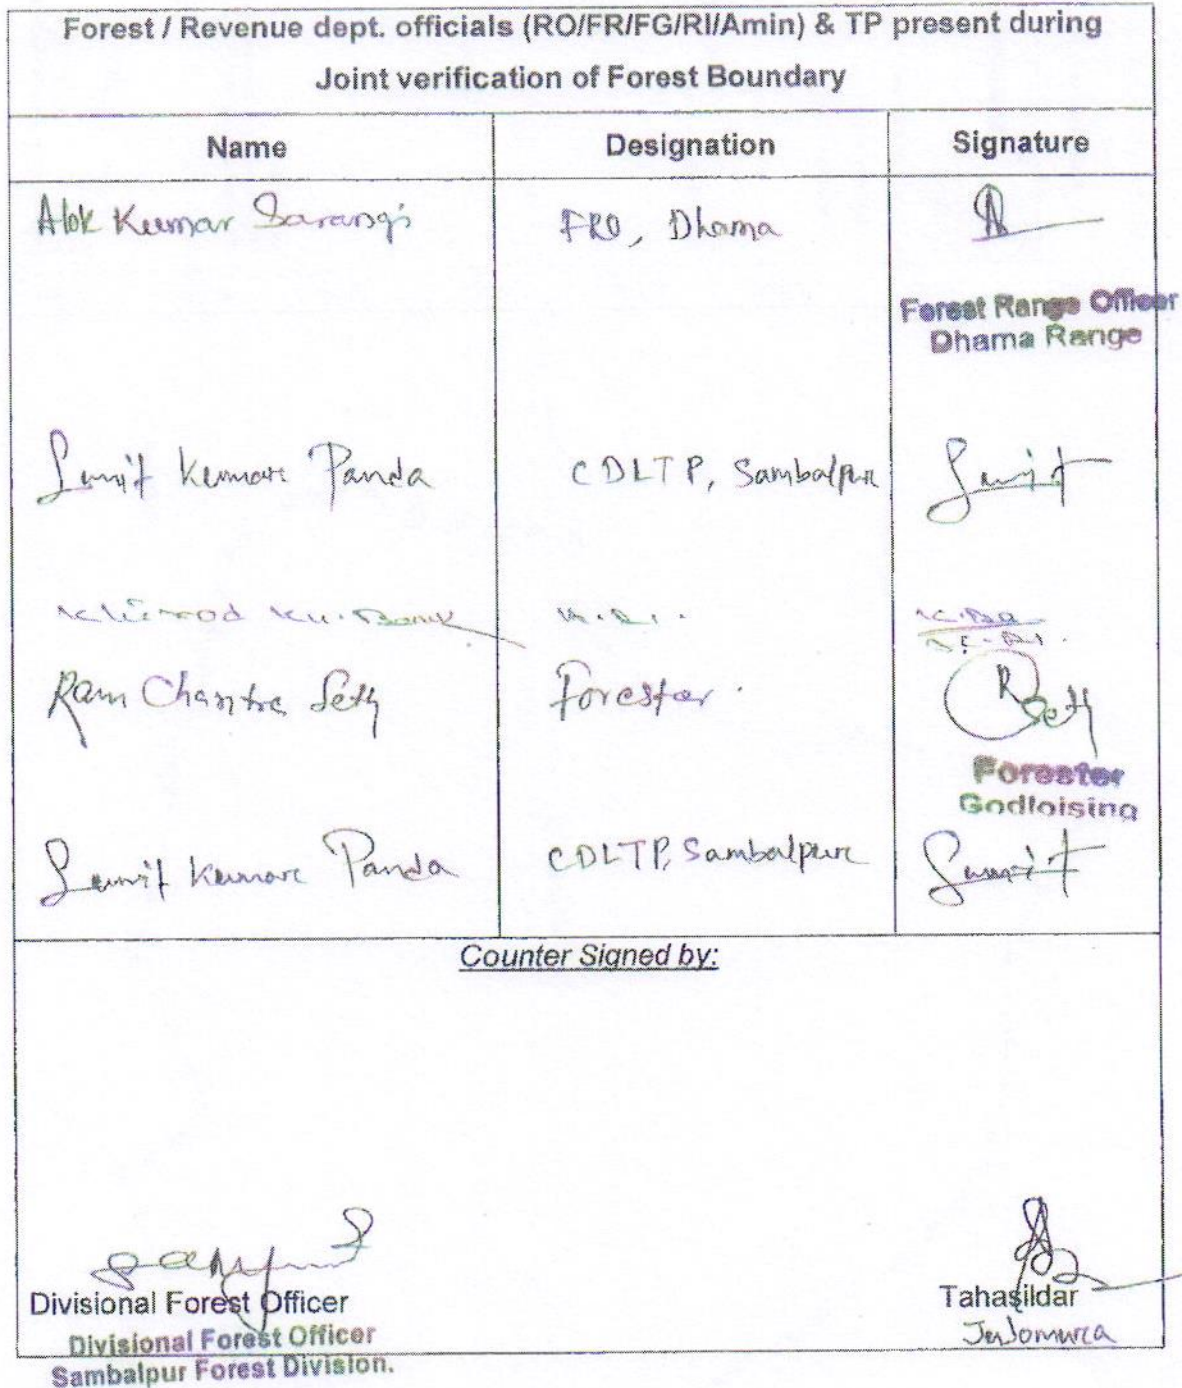 Forest / Revenue dept. officials (RO/FR/FG/RI/Amin) & TP present during
Joint verification of Forest Boundary
Name Designation Signature
Alok Kumar Sarangi FRO, Dhama
Forest Range Officer
Dhama Range
Sumit Kumar Panda CDLTP, Sambalpur Sumit
Ku.
Ram Chantra Seth Forester. RSeth
Forester
Godloising
Sumit Kumar Panda CDLTP, Sambalpur Sumit
Counter Signed by:
Divisional Forest Officer Tahasildar
Divisional Forest Officer Jujomura
Sambalpur Forest Division.